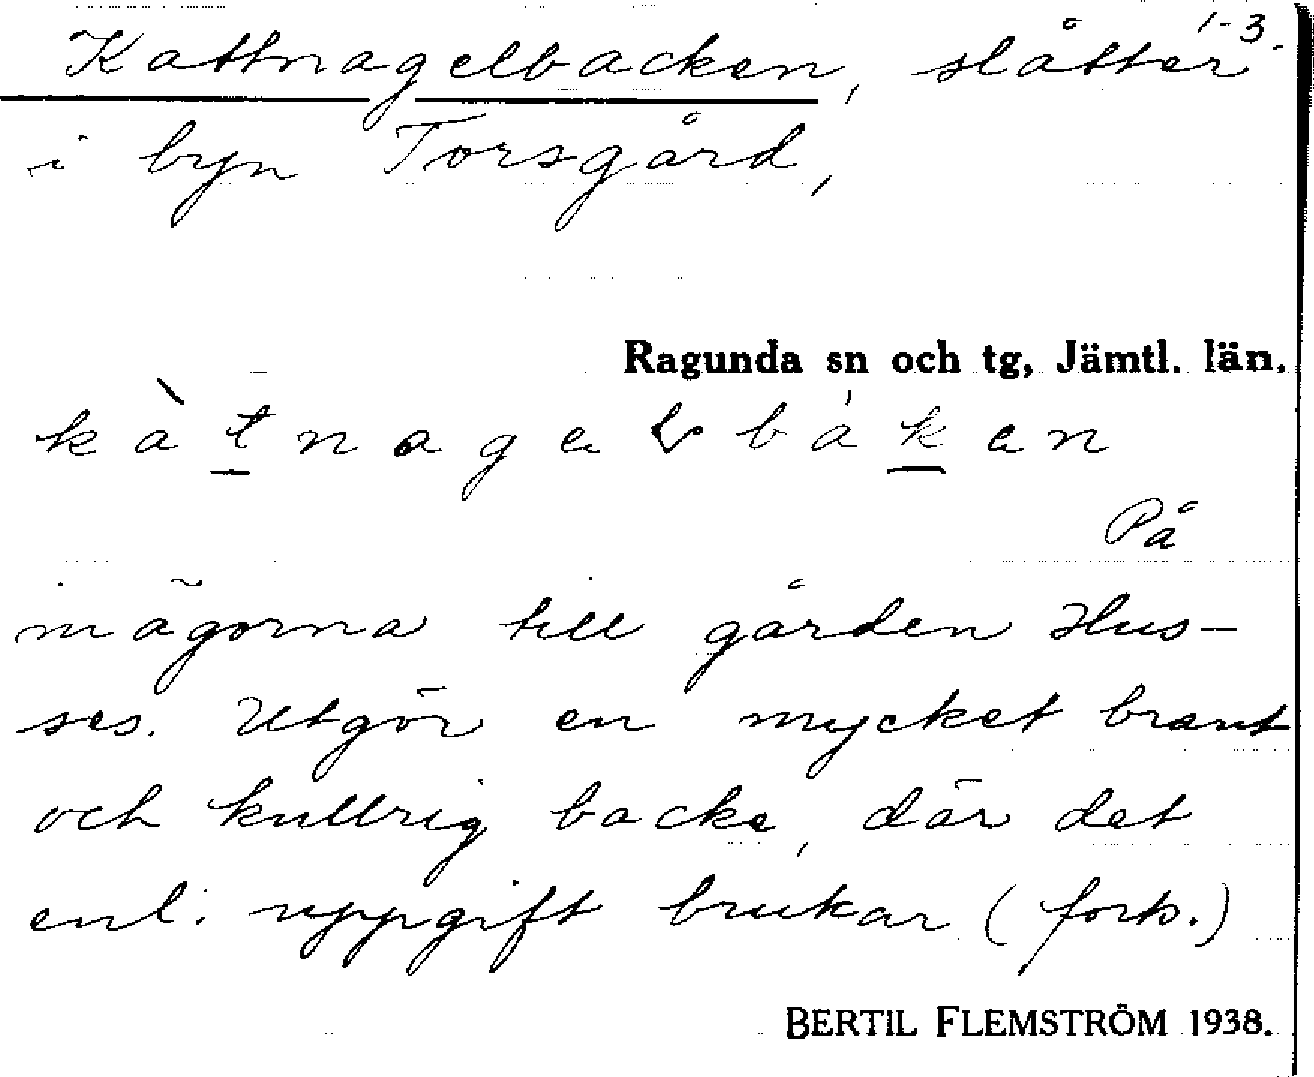 1-3.
Kattnagelbacken, slåtter
i byn Torsgård,
Ragunda sn och tg, Jämtl. län.
kàtnagelbáken
På
inägorna till gården Hus-
ses. Utgör en mycket brant
och kullrig backe, där det
enl. uppgift brukar (forts.)
BERTIL FLEMSTRÖM 1938.